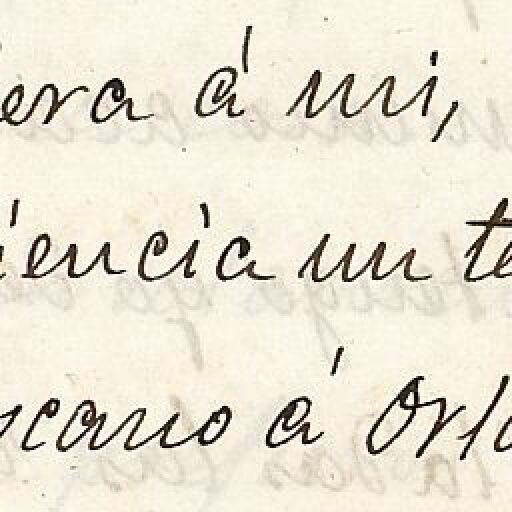 era á mi,
iencia un te
cano á Orla